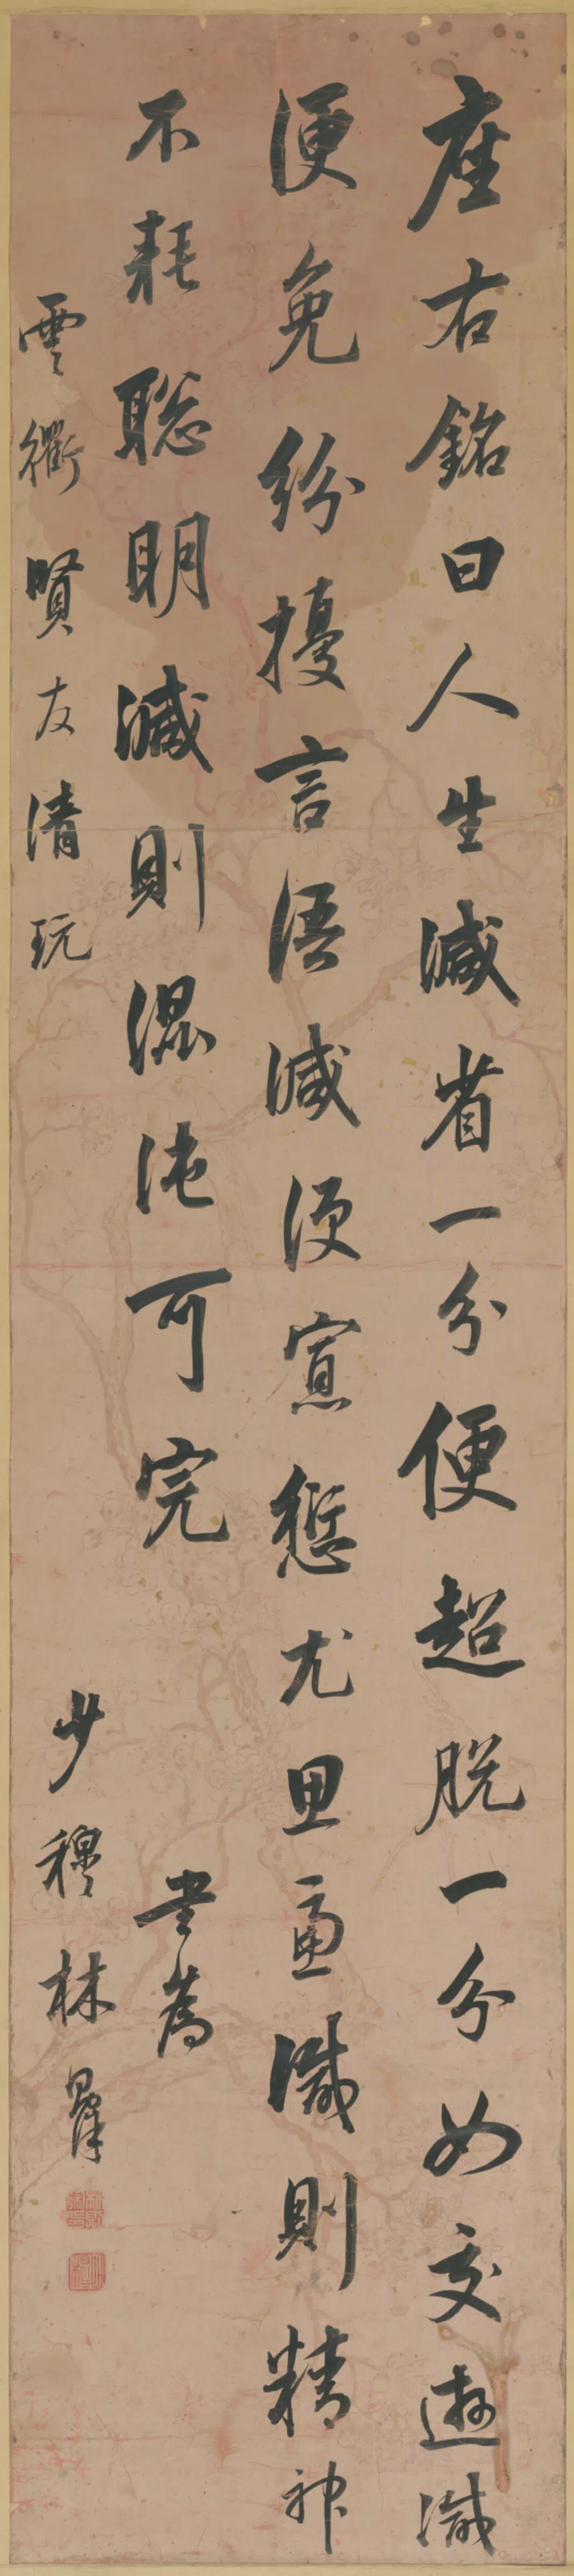 座右銘曰人生減省一分便超脫一分如交遊減
便免紛擾言語減便寡愆尤思慮減則精神
不耗聰明減則混沌可完 書為
雲衢賢友清玩 少穆林